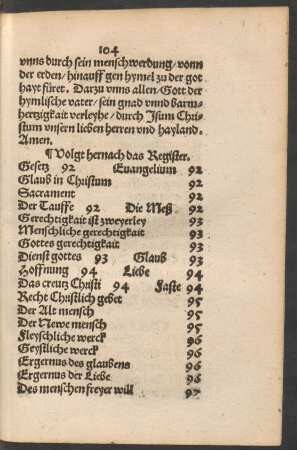 104
vnns durch sein menschwerdung/vonn
der erden/hinauff gen hymel zu der got
hayt füret. Darzu vnns allen/Gott der
hymlische vater/sein gnad vnnd barm-
hertzigkait verleyhe/durch Jsum Chri-
stum vnsern lieben herren vnd hayland.
Amen.
¶ Volgt hernach das Register.
Gesetz 92 Euangelium 92
Glaub in Christum 92
Sacrament 92
Der Tauffe 92 Die Meß 92
Gerechtigkait ist zweyerley 93
Menschliche gerechtigkait 93
Gottes gerechtigkait 93
Dienst gottes 93 Glaub 93
Hoffnung 94 Liebe 94
Das creutz Christi 94 Faste 94
Recht Christlich gebet 95
Der Alt mensch 95
Der Newe mensch 95
Fleyschliche werck 96
Geystliche werck 96
Ergernus des glaubens 96
Ergernus der Liebe 96
Des menschen freyer will 97